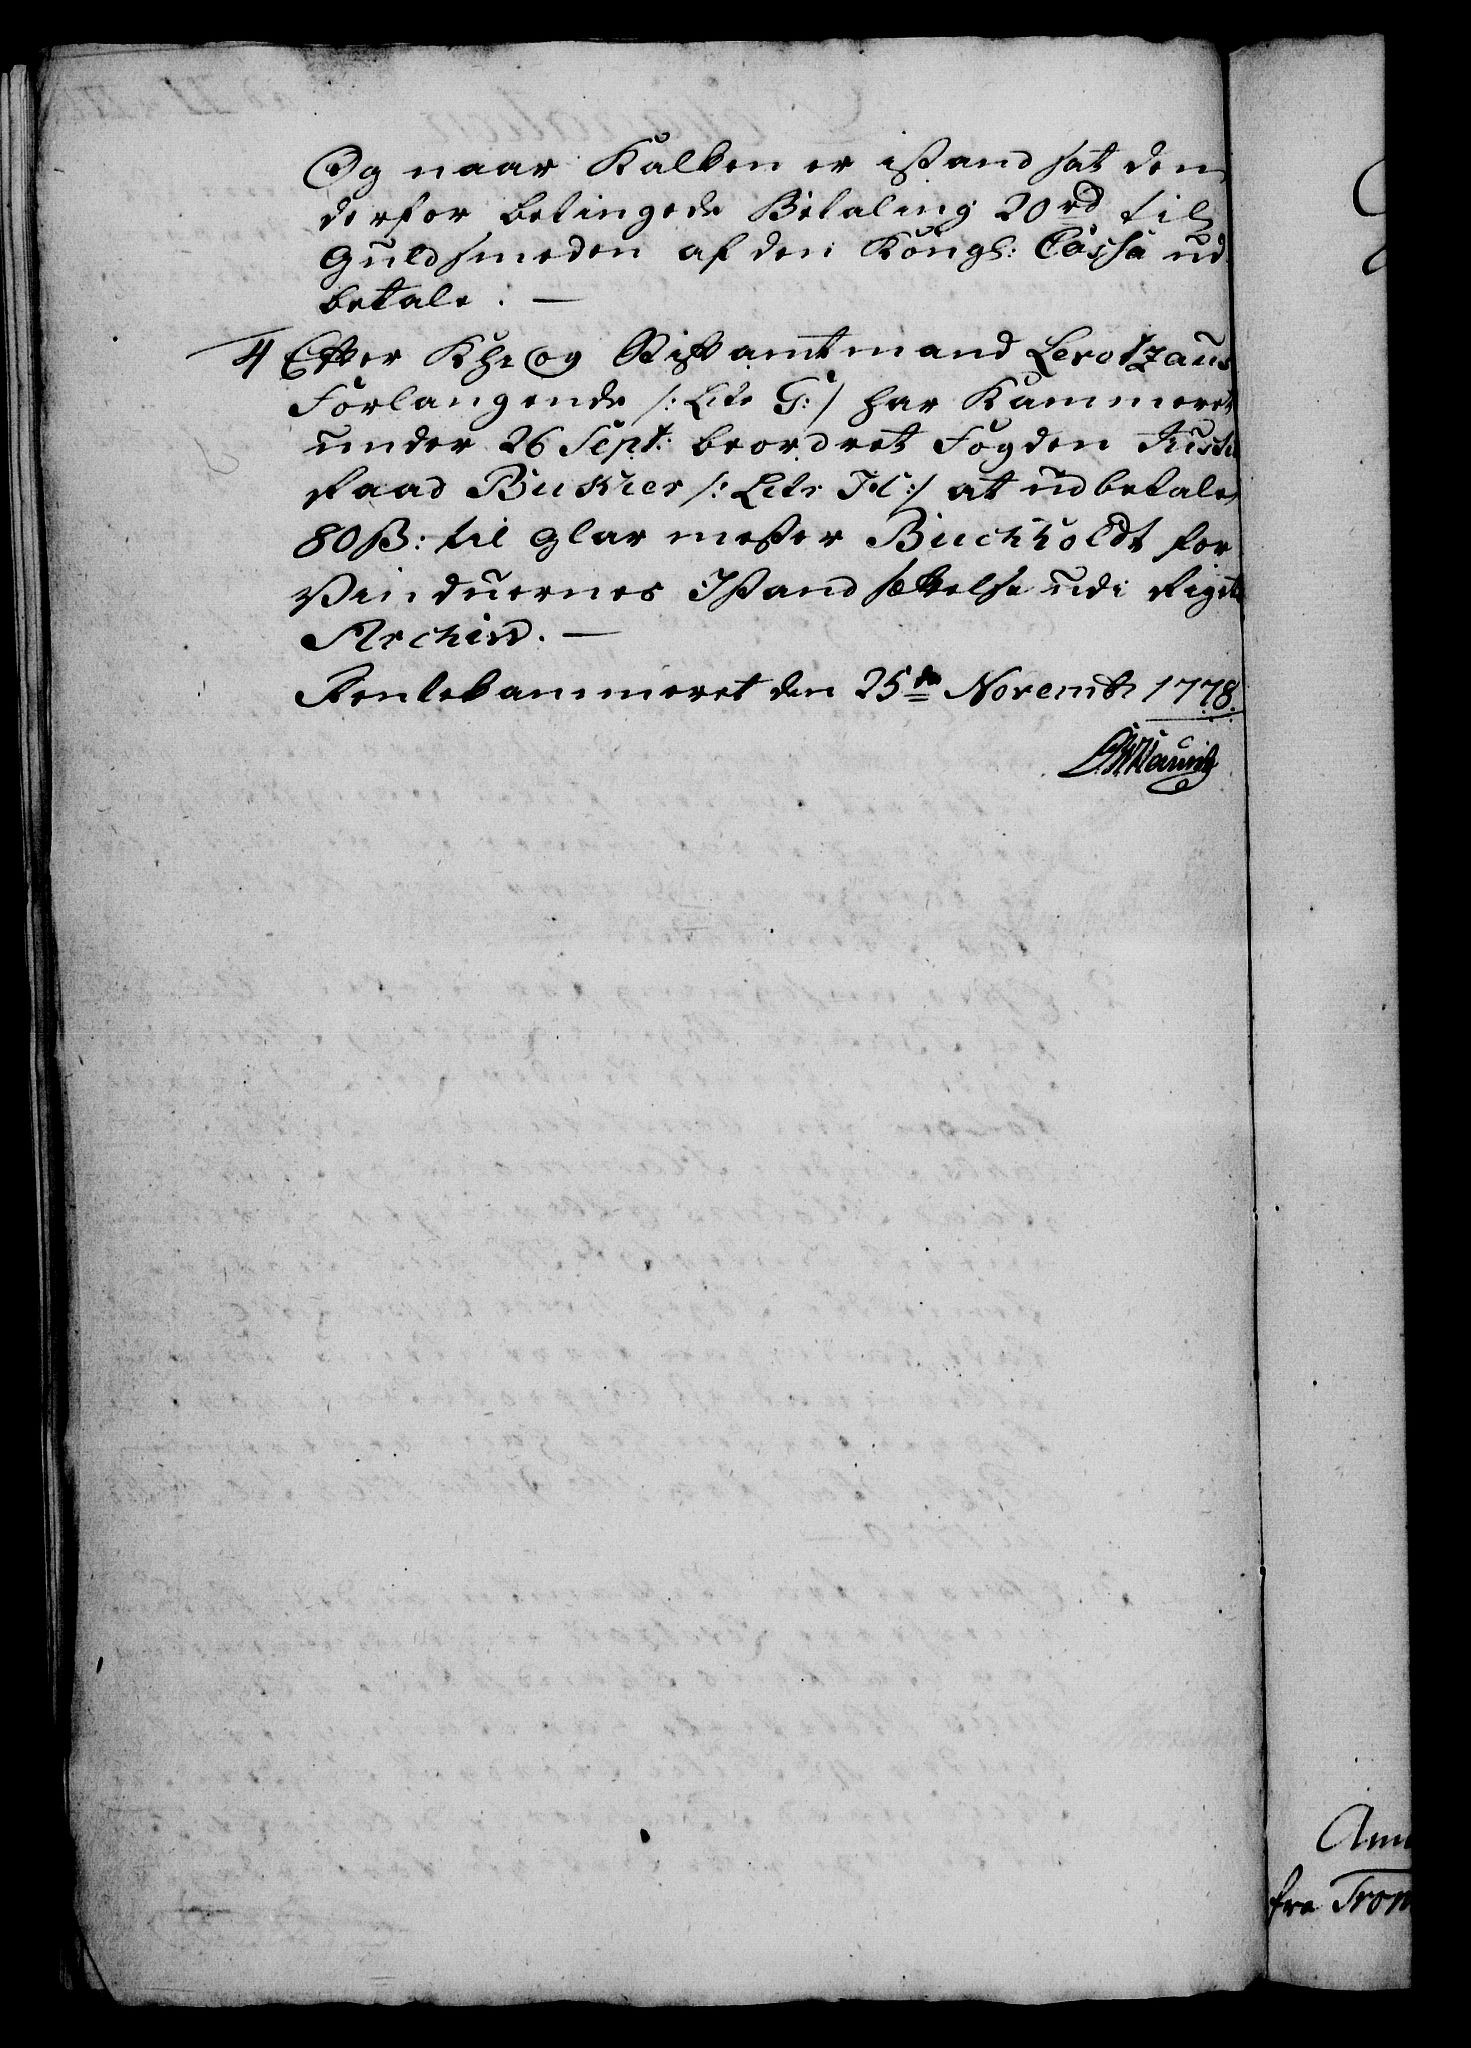 Og naar Kalken er istand sat den
derfor betingede Betaling 20 rd til
Guldsmeden af den Kongl: Cassa ud
betale. —
4 Efter Khr og Stiftamtmand Levetzaus
Forlangende /: Litr G:/ har Kammeret
under 26 Sept: beordret Fogden Justit
Raad Bukier /: Litr H:/ at udbetale
80 ß: til Glarmester Buchholdt for
Vinduernes Istandsættelse udi Rigets
Archiv. —
Rentekammeret den 25de Novemb 1778.
Am
fra Tron